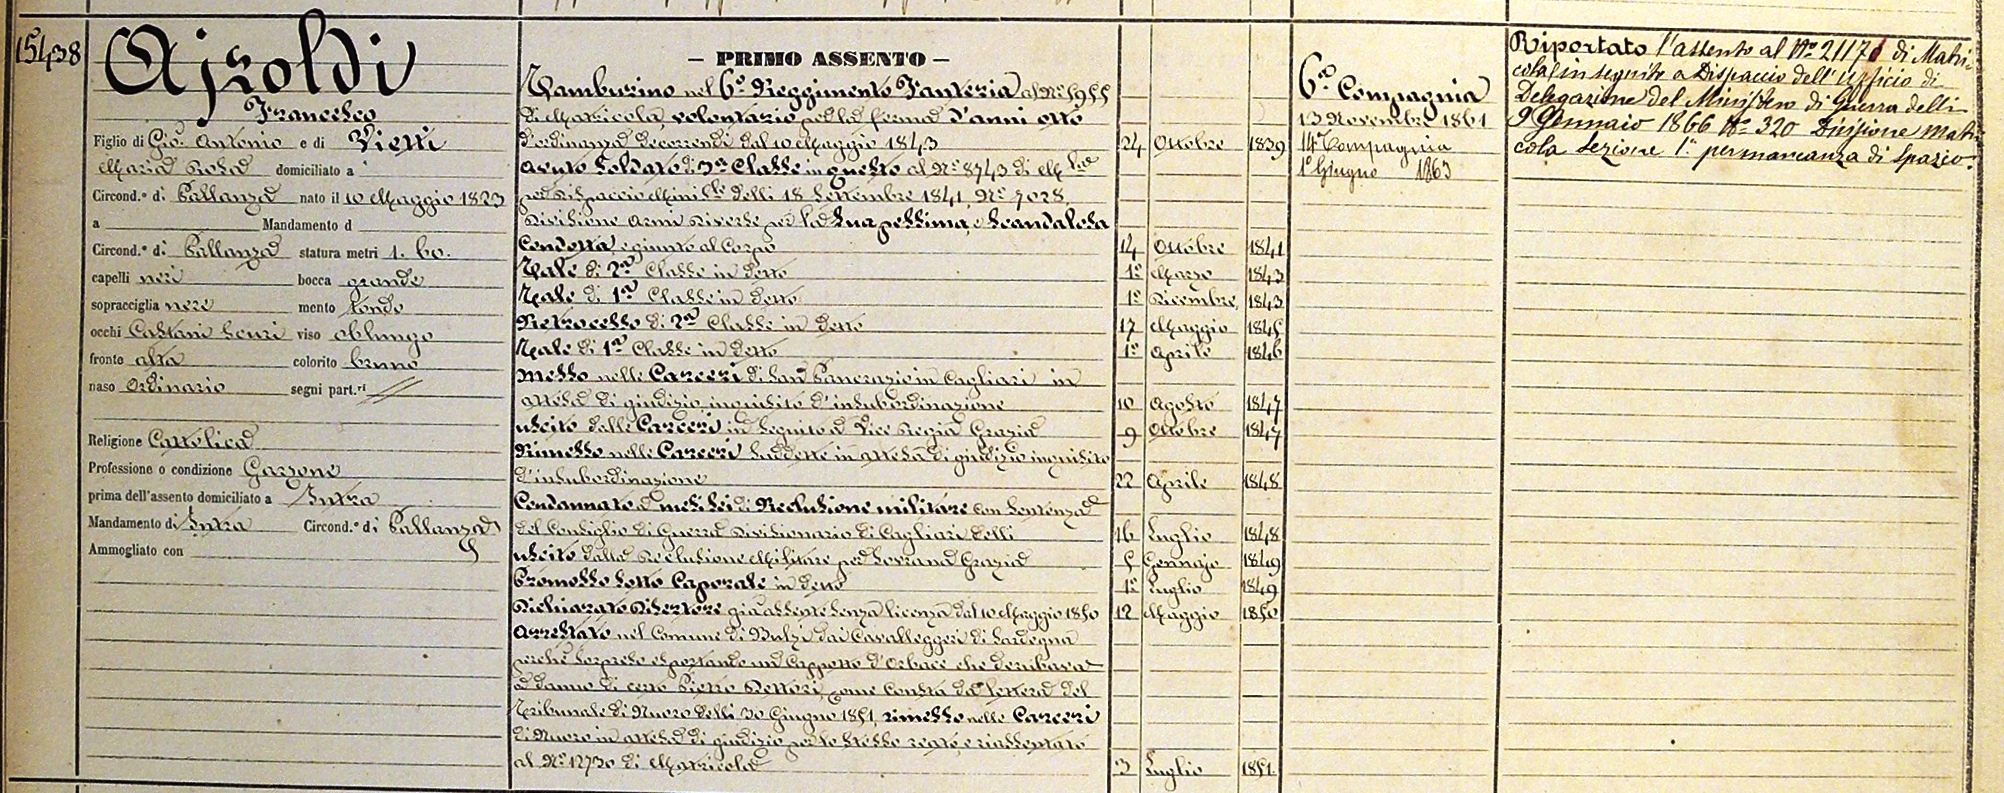 15438
Ajroldi
Francesco
Figlio di Gio. Antonio e di Pietti
Maria Rosa domiciliato a
Circond.o di Pallanza nato il 10 Maggio 1823
a Mandamento d
Circond.o di Pallanza statura metri 1. 60.
capelli neri bocca grande
sopracciglia nere mento tondo
occhi Castani scuri viso oblungo
fronte alta colorito bruno
naso Ordinario segni part.ri
Religione Cattolica
Professione o condizione Garzone
prima dell'assento domiciliato a Intra
Mandamento di Intra Circond.o di Pallanza
Ammogliato con
— PRIMO ASSENTO —
Tamburino nel 6o Reggimento Fanteria al No 5955
di Matricola, volontario per la ferma d'anni otto
d'ordinanza decorrendi dal 10 Maggio 1843 24 Ottobre 1839
avuto Soldato di 3a Classe in questo al No 8743 di
per Dispaccio Minile delli 18 Settembre 1841, No 7028,
Divisione Armi Diverse per la sua pessima, e scandalosa
Condotta, e giunto al Corpo 14 Ottobre 1841
Tale di 2a Classe in detto 1o Marzo 1843
Tale di 1a Classe in detto 1o Dicembre 1843
Retrocesso di 2a Classe in detto 17 Maggio 1845
Tale di 1a Classe in detto 1o Aprile 1846
Messo nelle Carceri di San Pancrazio in Cagliari in
attesa di giudizio inquisito d'insubordinazione 10 Agosto 1847
uscito dalle Carceri in seguito a Vice Regia Grazia 9 Ottobre 1847
Rimesso nelle Carceri suddette in attesa di giudizio inquisito
d'insubordinazione 22 Aprile 1848
Condannato a mesi sei di Reclusione militare con sentenza
del Consiglio di Guerra Divisionario di Cagliari delli 16 Luglio 1848
uscito dalla Reclusione Militare per Sovrana Grazia 5 Gennajo 1849
Promosso sotto Caporale in detto 1o Luglio 1849
Dichiarato Disertore già assente senza licenza dal 10 Maggio 1850 12 Maggio 1850
Arrestato nel Comune di Bulzi dai Cavalleggeri di Sardegna
perché sorpreso esportando un Cappotto d'Orbace che derubava
a danno di certo Pietro Dettori, come consta da lettera del
Tribunale di Nuoro delli 30 Giugno 1851, rimesso nelle Carceri
di Nuoro in attesa di giudizio per lo stesso reato, e riassentato
al No 12730 di Matricola 3 Luglio 1851
6a Compagnia
13 Novembre 1861
14a Compagnia
1o Giugno 1863
Riportato l'assento al No 21171 di Matri-
cola in seguito a Dispaccio dell'Ufficio di
Delegazione del Ministero di Guerra delli
9 Gennaio 1866 No 320 Divisione Matri
cola Sezione 1a per mancanza di spazio.